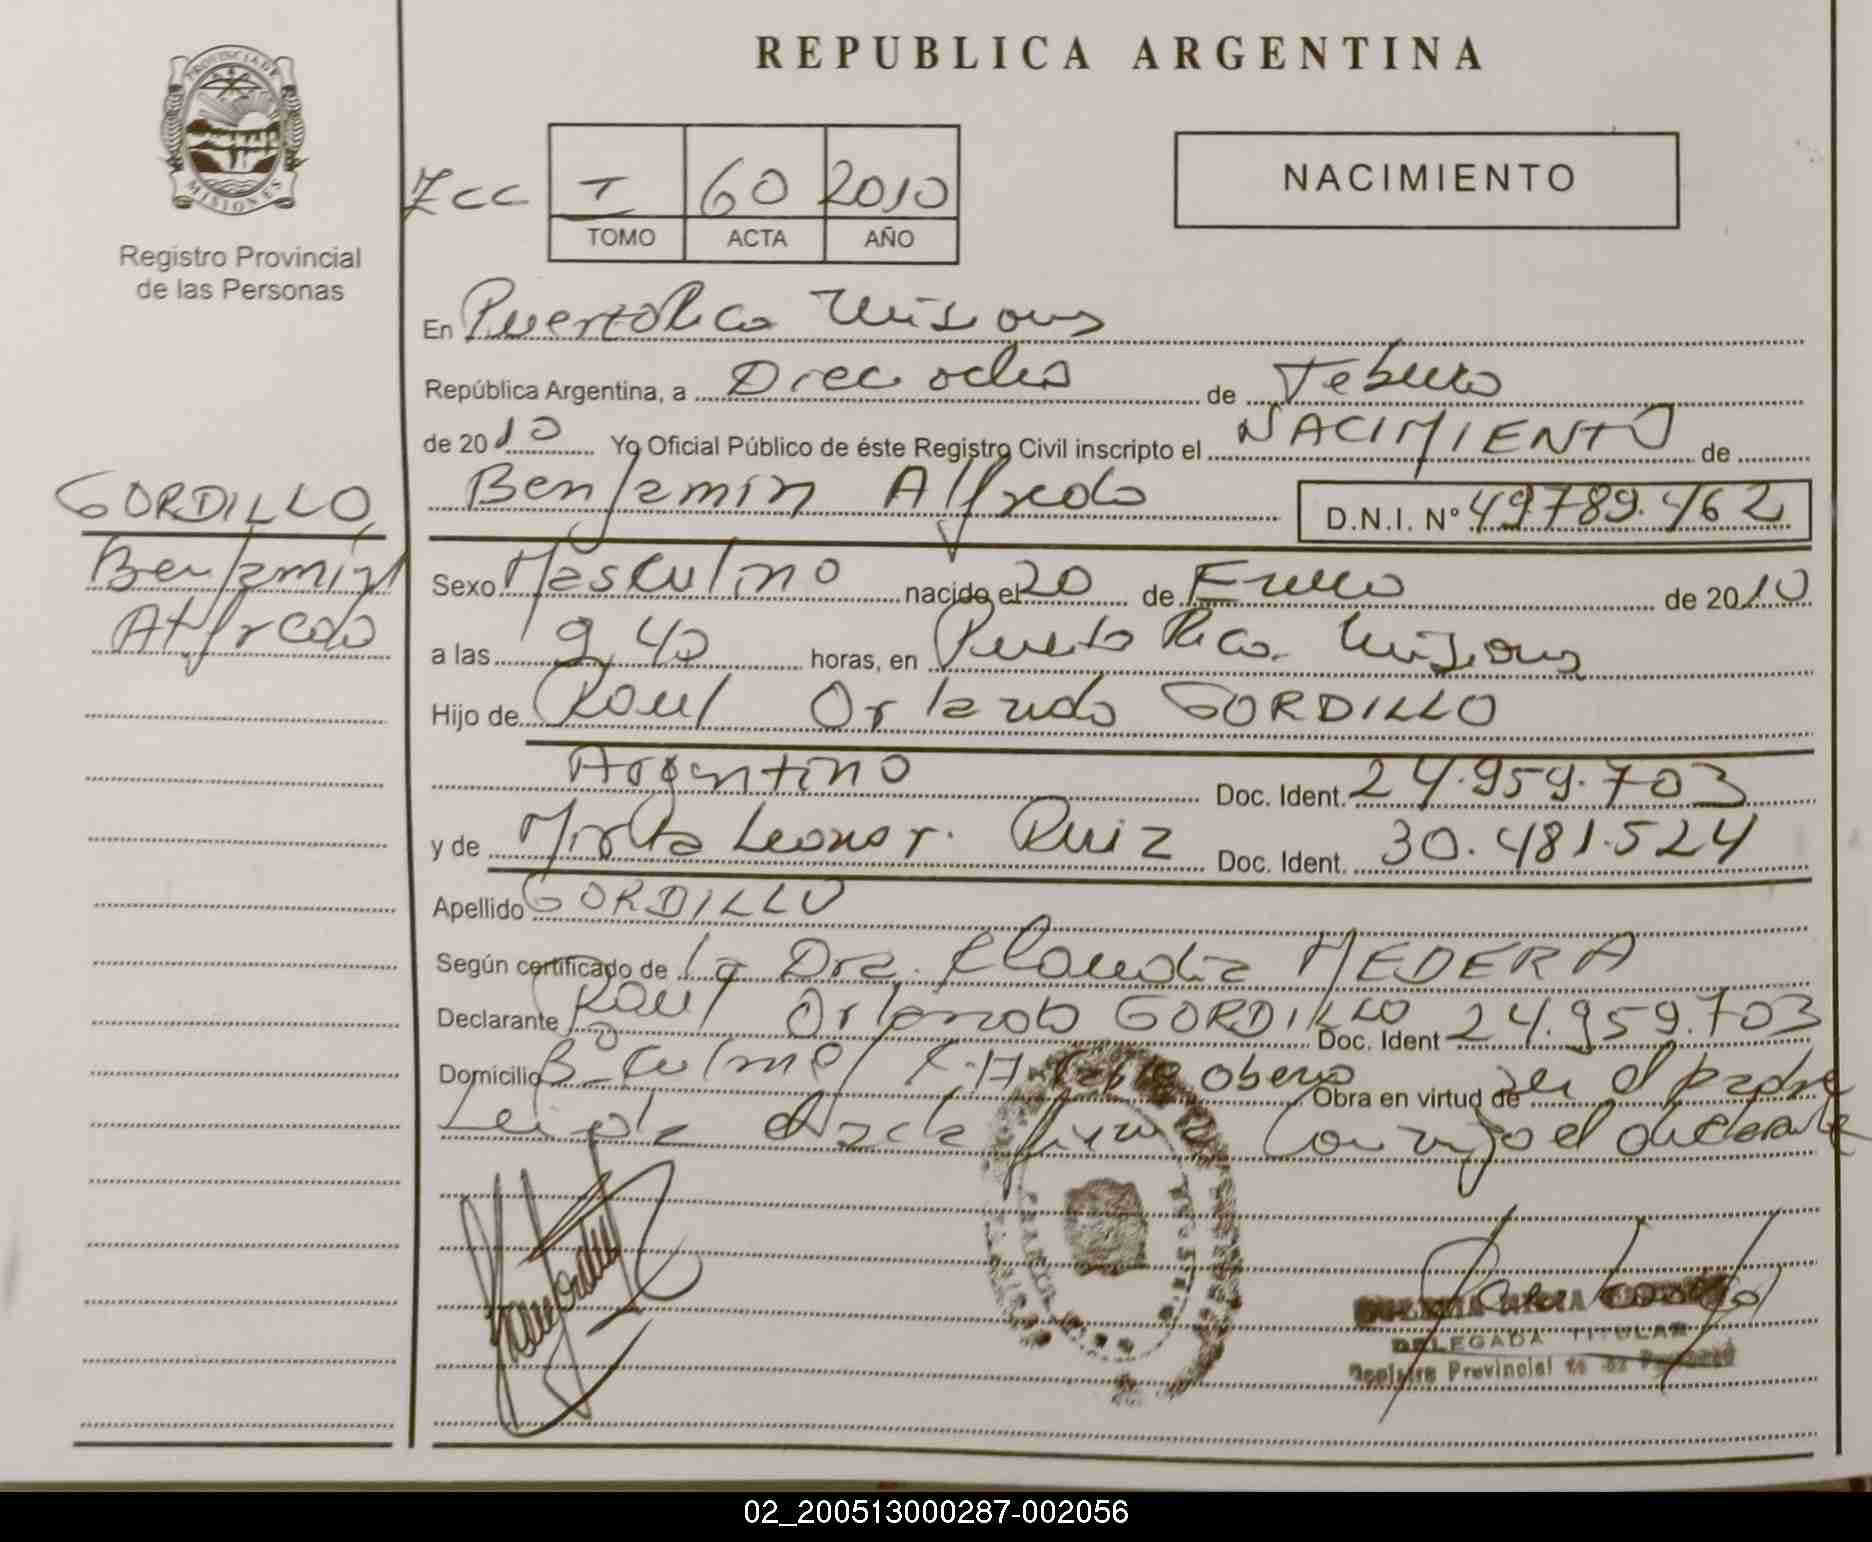 PROVINCIA DE
MISIONES
Registro Provincial
de las Personas
GORDILLO,
Benjamín
Alfredo
REPUBLICA ARGENTINA
I 60 2010
TOMO ACTA AÑO
NACIMIENTO
En Puerto Rico Misiones
República Argentina, a Dieciocho de Febrero
de 2010 Yo Oficial Público de éste Registro Civil inscripto el NACIMIENTO de
Benjamín Alfredo D.N.I. Nº 49.789.462
Sexo Masculino nacido el 20 de Enero de 2010
a las 9,40 horas, en Puerto Rico Misiones
Hijo de Raul Orlando GORDILLO
Argentino Doc. Ident. 24.959.703
y de Mirta Leonor Ruiz Doc. Ident. 30.481.524
Apellido GORDILLO
Según certificado de la Dra. Claudia MEDERA
Declarante Raul Orlando GORDILLO Doc. Ident 24.959.703
Domicilio Bº Culmey Obra en virtud de ser el padre
Leida el acta firma conmigo el declarante
DELEGADA TITULAR
Registro Provincial de las Personas
02_200513000287-002056